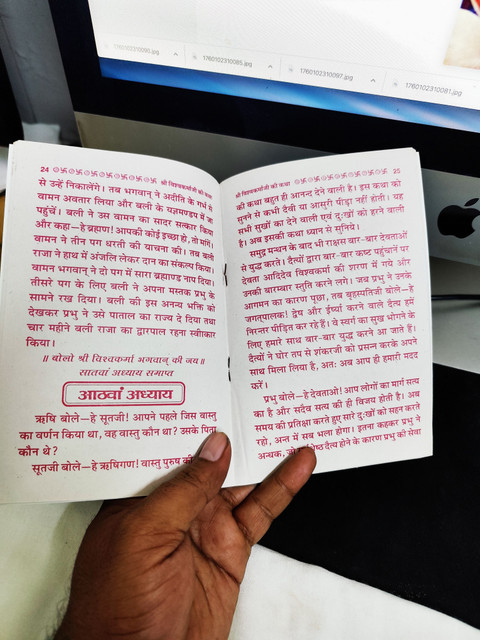 1760102310095.jpg
1760102310085.jpg
1760102310097.jpg
1760102310081.jpg
24 श्री विश्वकर्माजी की कथा
से उन्हें निकालेंगे। तब भगवान् ने अदीति के गर्भ से
वामन अवतार लिया और बली के यज्ञमण्डप में जा
पहुंचें। बली ने उस वामन का सादर सत्कार किया
और कहा—हे ब्रहाण! आपकी कोई इच्छा हो, तो मांगें।
वामन ने तीन पग धरती की याचना की। तब बली
राजा ने हाथ में अंजलि लेकर दान का संकल्प किया।
वामन भगवान् ने दो पग में सारा ब्रहाण्ड नाप दिया।
तीसरे पग के लिए बली ने अपना मस्तक प्रभु के
सामने रख दिया। बली की इस अनन्य भक्ति को
देखकर प्रभु ने उसे पाताल का राज्य दे दिया तथा
चार महीने बली राजा का द्वारपाल रहना स्वीकार
किया।
॥ बोलो श्री विश्वकर्मा भगवान् की जय॥
सातवां अध्याय समाप्त
आठवां अध्याय
ऋषि बोले—हे सूतजी! आपने पहले जिस वास्तु
का वर्णन किया था, वह वास्तु कौन था? उसके पिता
कौन थे?
सूतजी बोले—हे ऋषिगण! वास्तु पुरुष की
श्री विश्वकर्माजी की कथा 25
की कथा बहुत ही आनन्द देने वाली है। इस कथा को
सुनने से कभी दैवी या आसुरी पीड़ा नहीं होती। यह
सभी सुखों का देने वाली एवं दुःखों को हरने वाली
है। अब इसकी कथा ध्यान से सुनिये।
समुद्र मन्थन के बाद भी राक्षस बार-बार देवताओं
से युद्ध करते। दैत्यों द्वारा बार-बार कष्ट पहुंचाने पर
देवता आदिदेव विश्वकर्मा की शरण में गये और
उनकी बारम्बार स्तुति करने लगे। जब प्रभु ने उनके
आगमन का कारण पूछा, तब बृहस्पतिजी बोले—हे
जगत्‌पालक! द्वेष और ईर्ष्या करने वाले दैत्य हमें
निरन्तर पीड़ित कर रहे हैं। वे स्वर्ग का सुख भोगने के
लिए हमारे साथ बार-बार युद्ध करने आ जाते हैं।
दैत्यों ने घोर तप से शंकरजी को प्रसन्न करके अपने
साथ मिला लिया है, अतः अब आप ही हमारी मदद
करें।
प्रभु बोले—हे देवताओं! आप लोगों का मार्ग सत्य
का है और सदैव सत्य की ही विजय होती है। अब
समय की प्रतिक्षा करते हुए सारे दुःखों को सहन करते
रहो, अन्त में सब भला होगा। इतना कहकर प्रभु ने
अन्धक, दैत्य होने के कारण प्रभु की सेवा